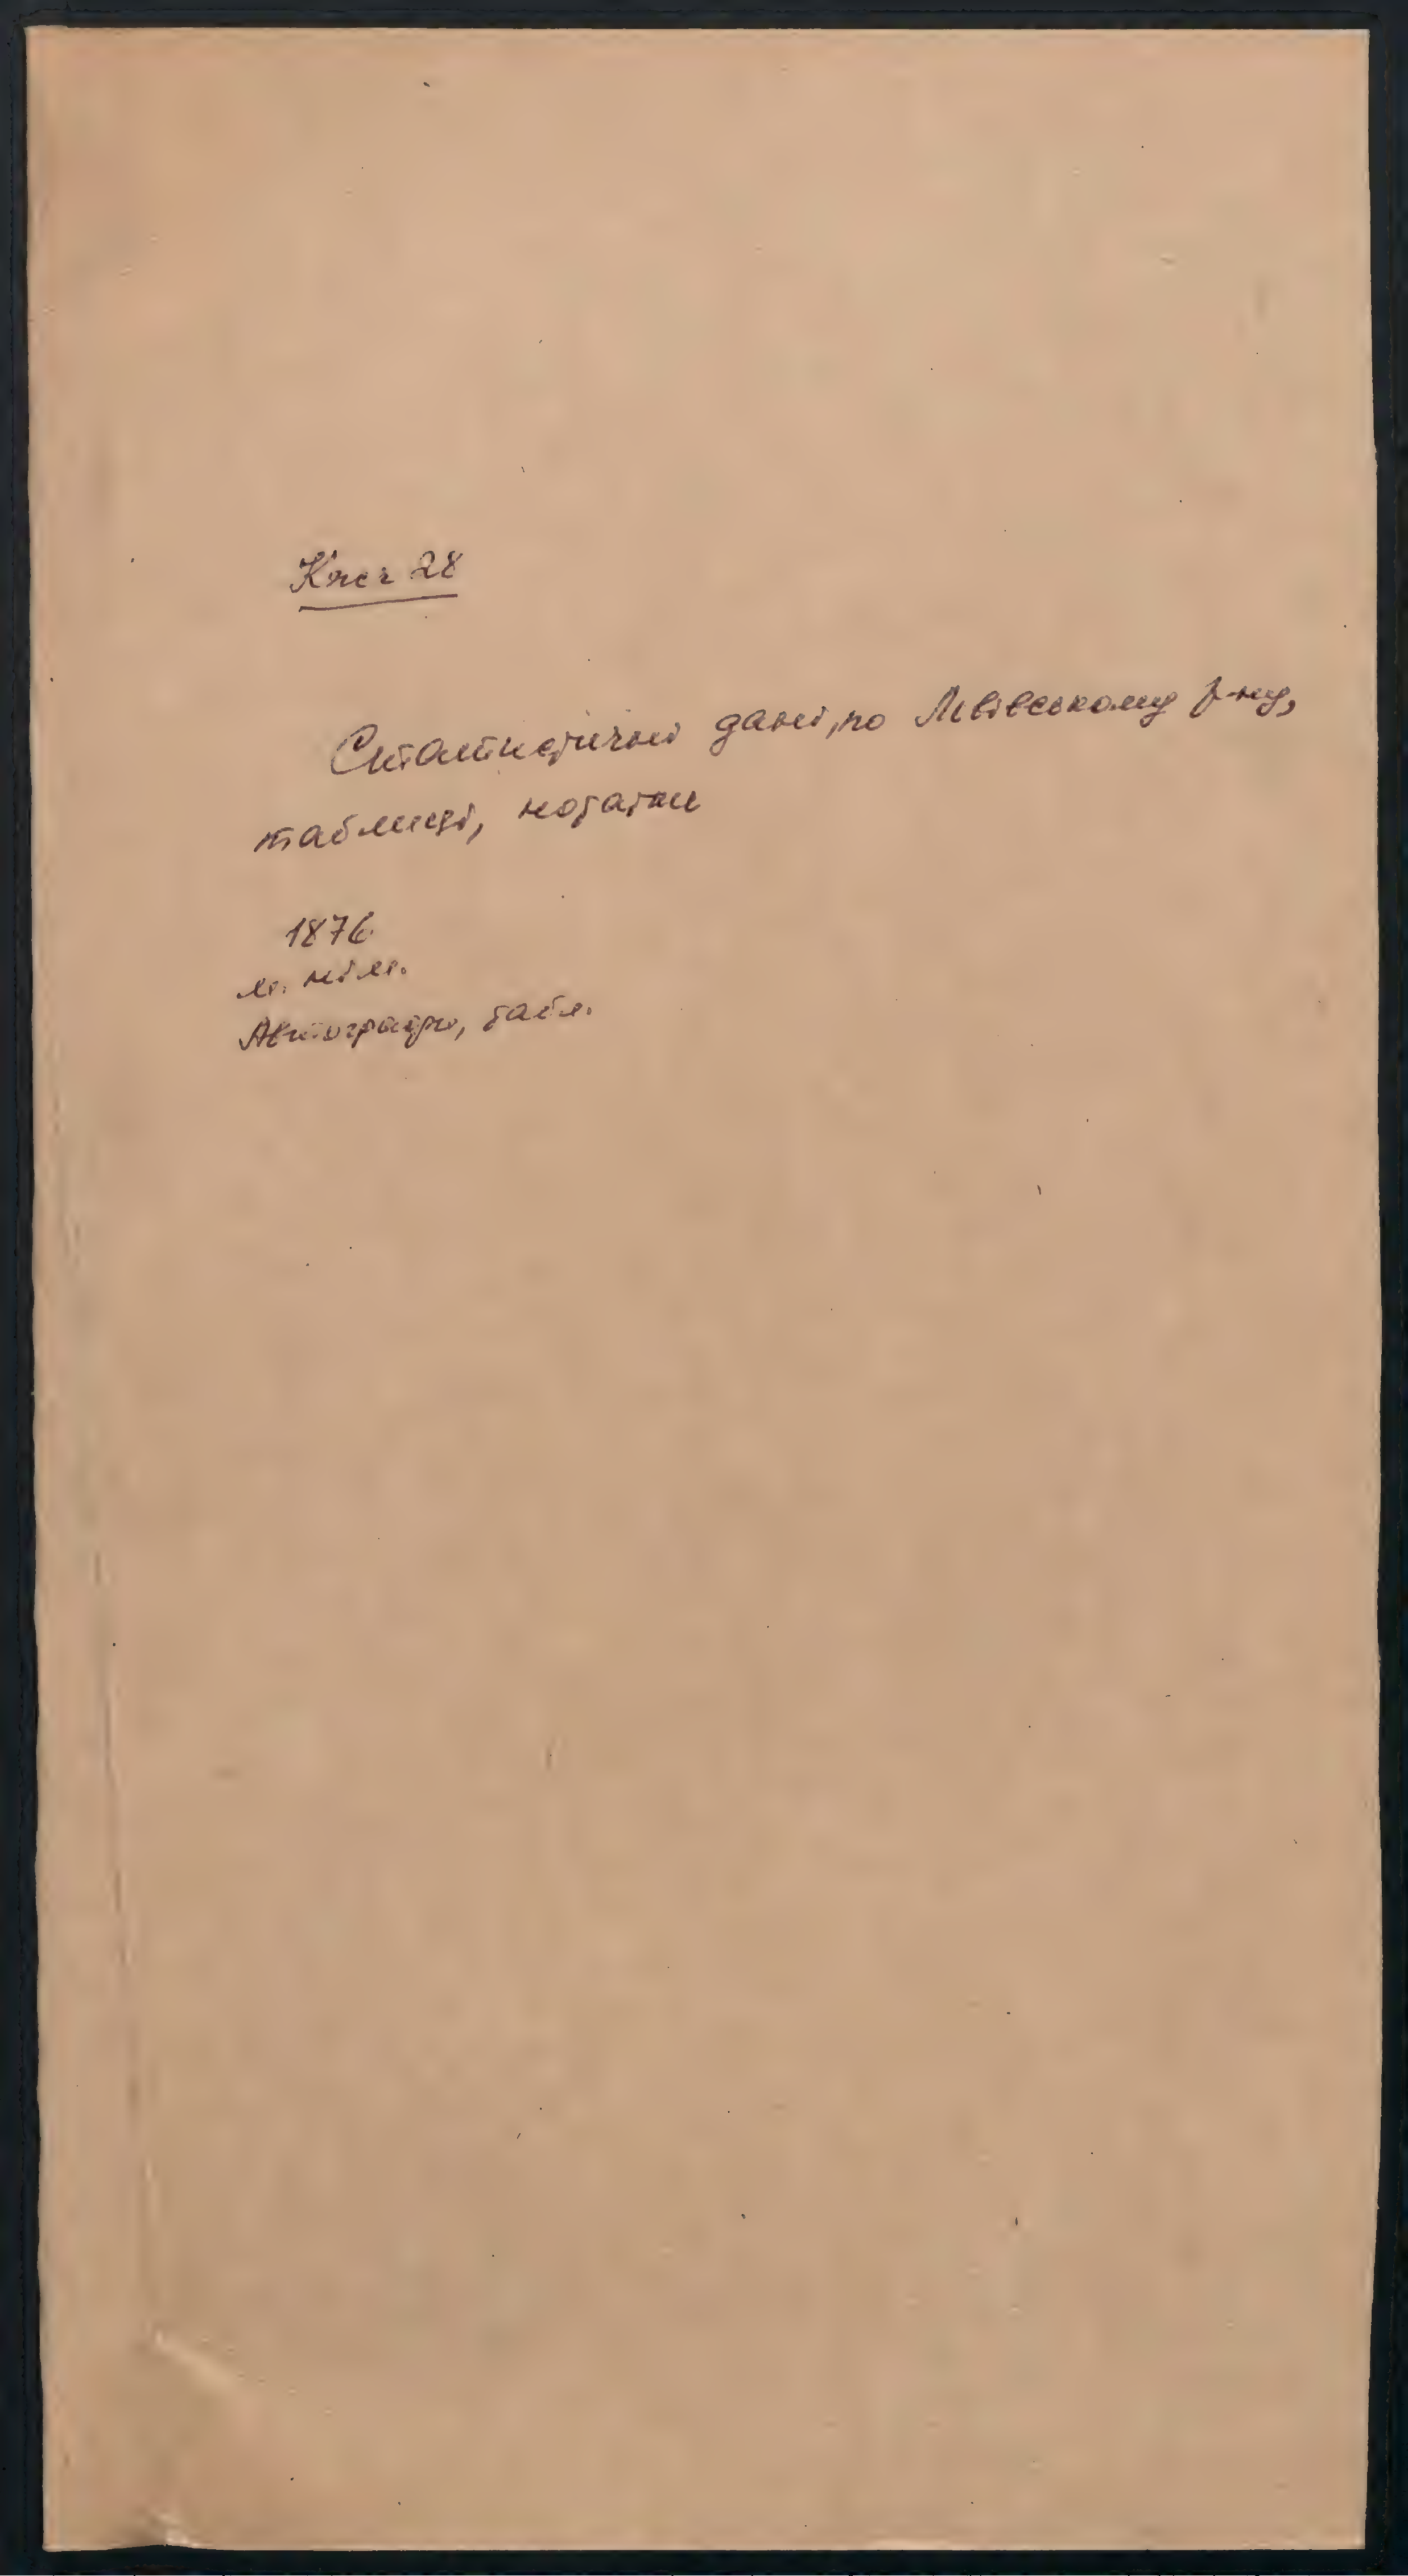 Кяєч 28
Статистичні дані, по Львівському р-ну,
таблиці, нотатки
1876
м. нім.
Автографи, табл.